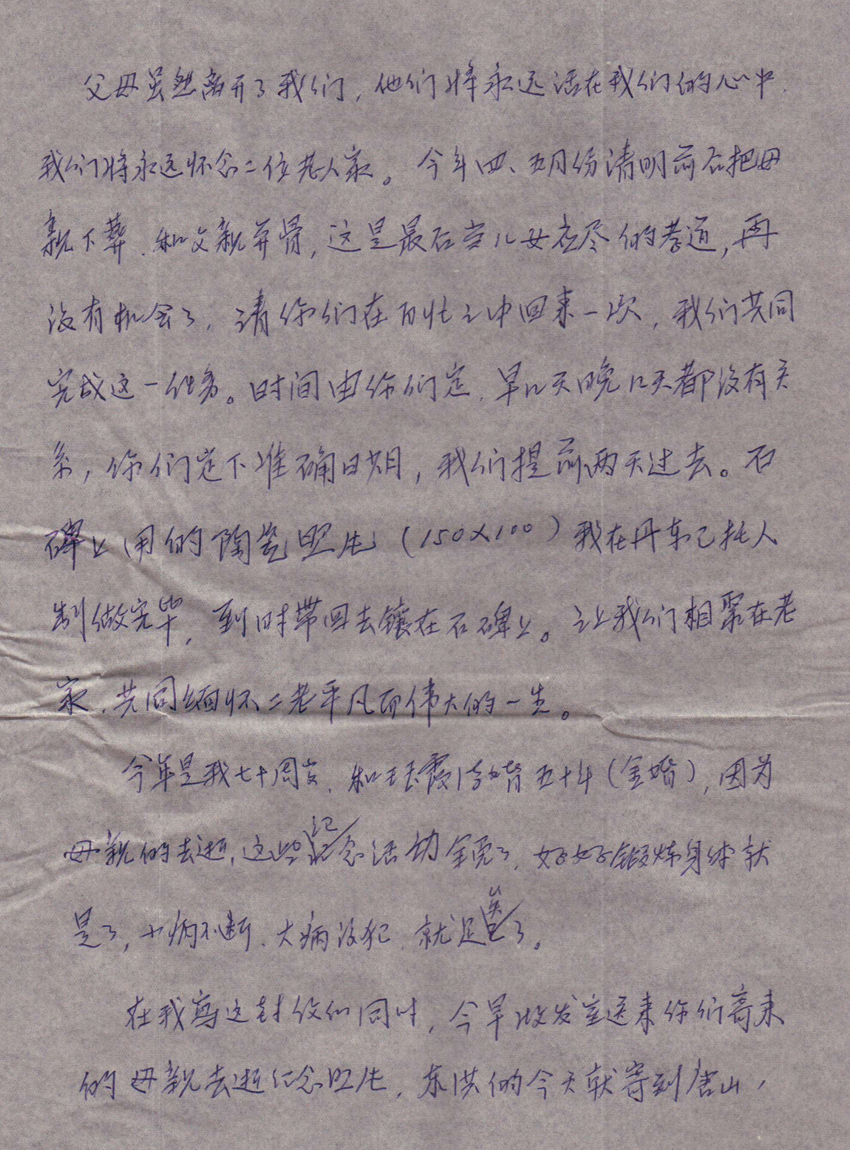 父母虽然离开了我们，他们将永远活在我们的心中.
我们将永远怀念二位老人家。今年四、五月份清明前后把母
亲下葬.和父亲并骨，这是最后当儿女应尽的孝道，再
没有机会了，请你们在百忙之中回来一次，我们共同
完成这一任务。时间由你们定.早几天晚几天都没有关
系，你们定下准确日期，我们提前两天过去。石
碑上用的陶瓷照片（150×100）我在丹东已托人
制做完毕，到时带回去镶在石碑上。让我们相聚在老
家.共同缅怀二老平凡而伟大的一生。
今年是我七十周岁.和玉霞结婚五十年（金婚），因为
母亲的去逝，这些记念活动全免了.好好锻炼身体就
是了，小病不断.大病没犯.就足矣了。
在我写这封信的同时，今早收发室送来你们寄来
的母亲去逝纪念照片，东洪的今天就寄到唐山，